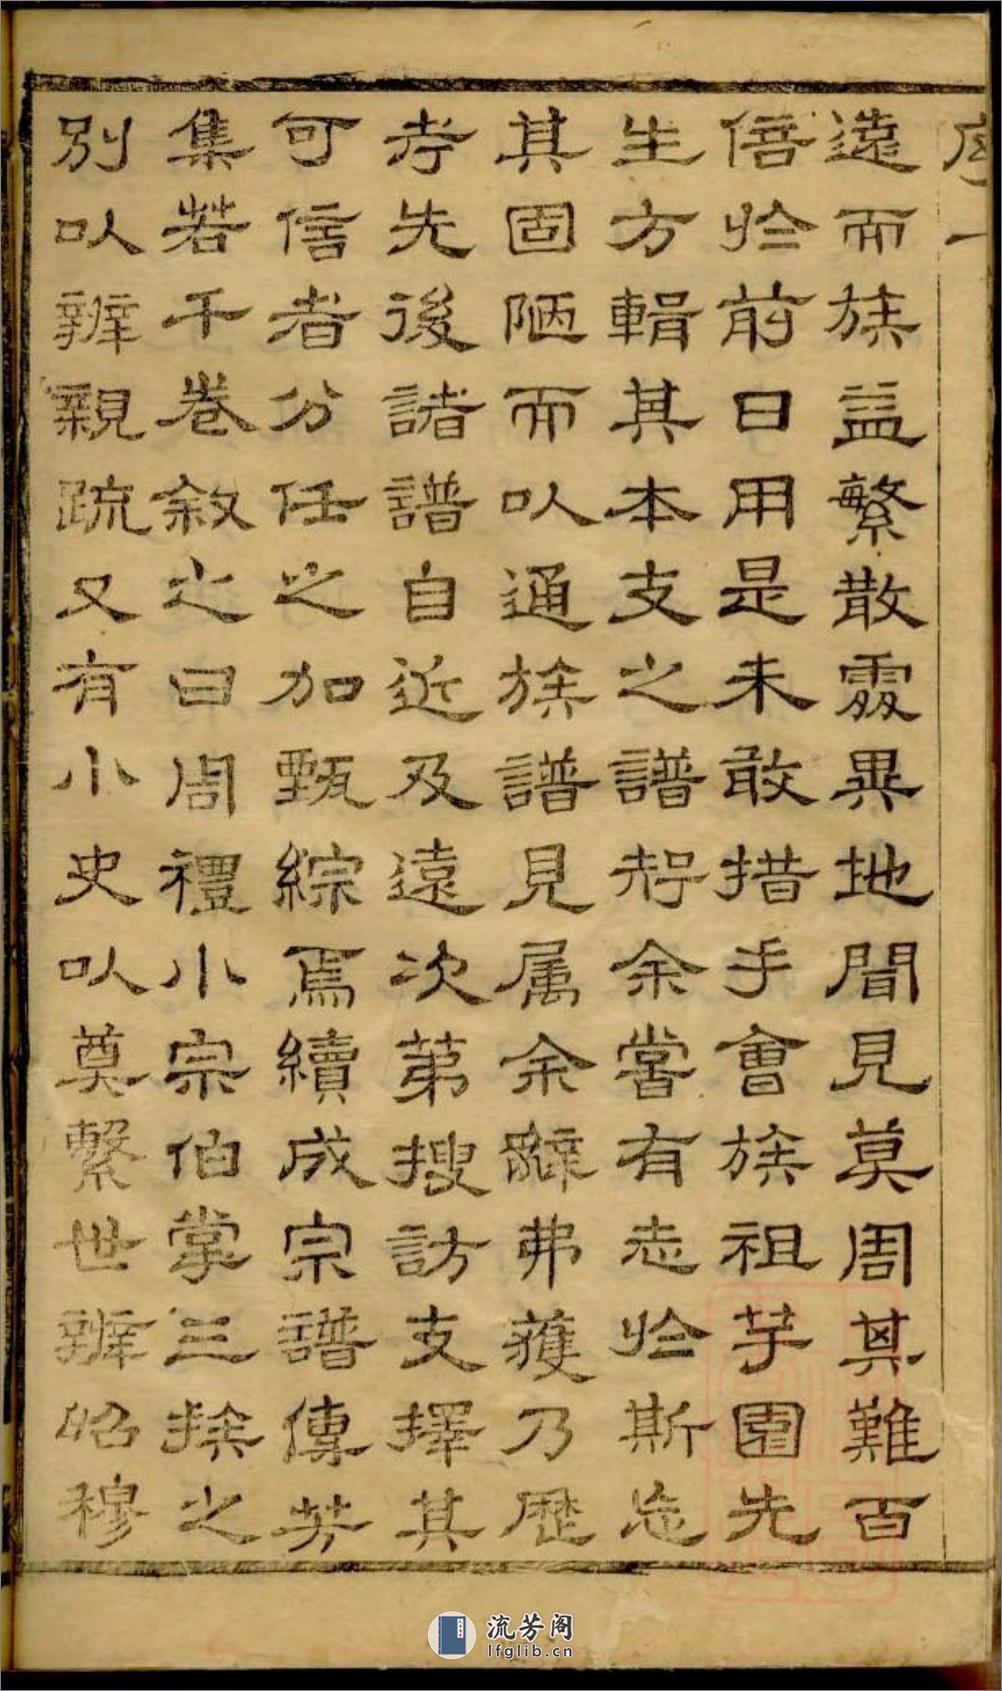 序一
遠而族益繁散處異地聞見莫周其難百
倍於前日用是未敢措手會族祖芋園先
生方輯其本支之譜部余嘗有志於斯忘
其固陋而以通族譜見属余辭弗獲乃歷
考先後諸譜自近及遠次第搜訪支擇其
可信者分任之加甄綜焉續成宗譜傳芳
集若干卷叙之曰周禮小宗伯掌三族之
別以辨親疏又有小史以奠繫世辨昭穆
流芳阁
lfglib.cn